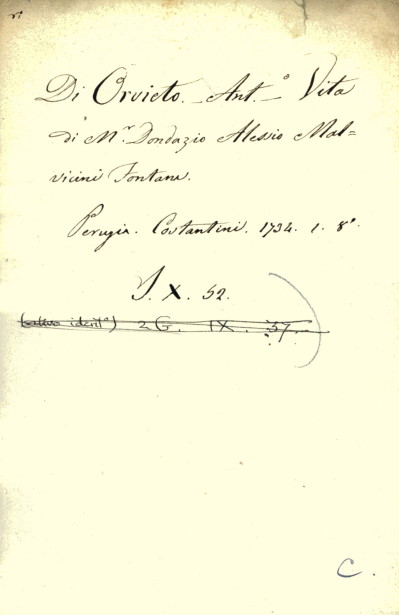 Di Orvieto. Ant.° Vita
di M.r Dondazio Alessio Mal=
vicini Fontana.
Perugia. Costantini. 1734. 1. 8°.
I. X. 52.
(altro ident°) 2 G. IX. 37.
C.